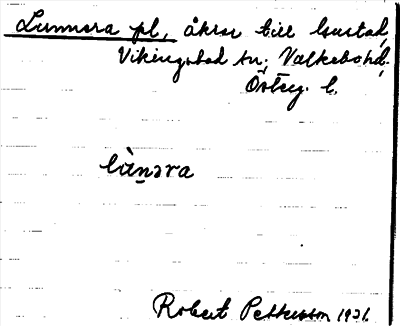 Lunnera pl, åkrar till Gustad,
Vikingstad sn; Valkebo hd.
Östey. l.
lùnəra
Robert Pettersson 1921.